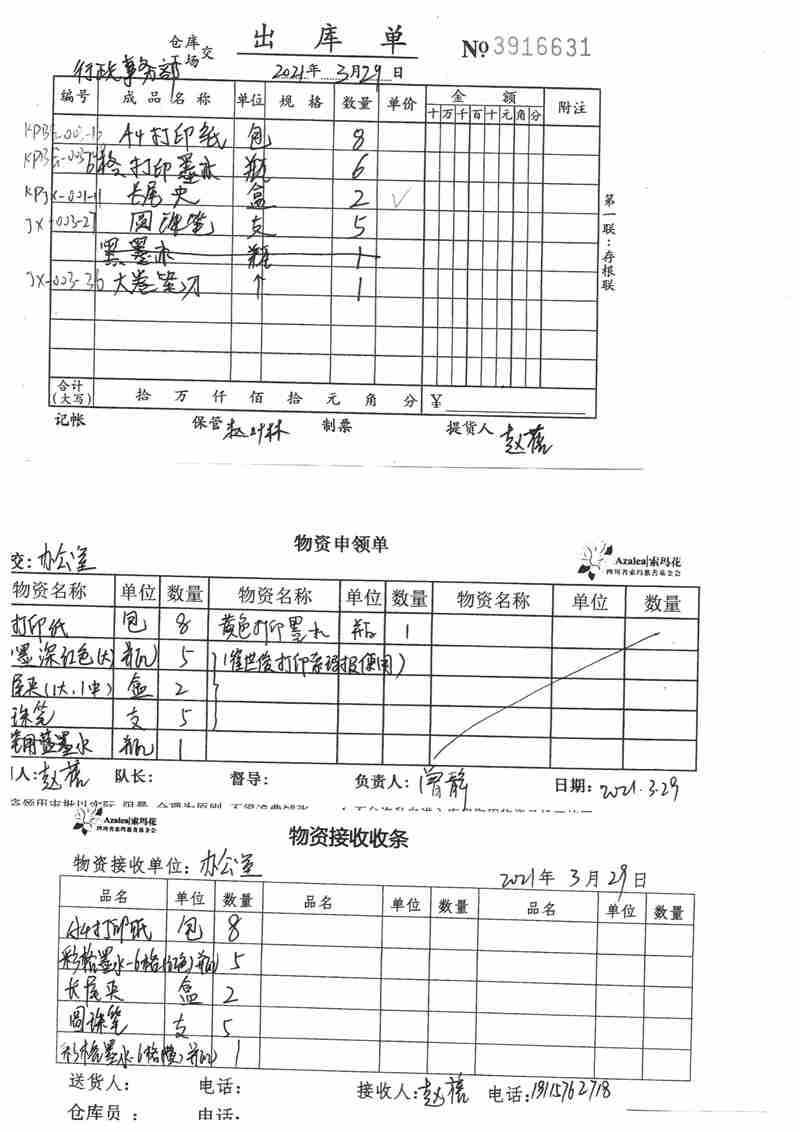 出 库 单
仓库
场 交
行政事务部
№ 3916631
2021年 3月29日
编号 成品名称 单位 规格 数量 单价 金额 附注
十 万 千 百 十 元 角 分
A4打印纸 包 8
6格打印墨水 瓶 6
长尾夹 盒 2
JX-003-27 圆珠笔 支 5
黑墨水 瓶 1
JX-003-36 大卷笔刀 个 1
第一联：存根联
合计(大写) 拾 万 仟 佰 拾 元 角 分 ¥
记帐 保管 制票 提货人 赵蓓
物资申领单
Azalea|索玛花
四川省索玛慈善基金会
交：办公室
物资名称 单位 数量 物资名称 单位 数量 物资名称 单位 数量
打印纸 包 8 黄色打印墨水 瓶 1
墨深红色(大) 瓶 5
尾夹(1大,1中) 盒 2
珠笔 支 5
钢蓝墨水 瓶 1
人：赵蓓 队长： 督导： 负责人：曾静 日期：2021.3.29
Azalea|索玛花
四川省索玛慈善基金会
物资接收收条
物资接收单位：办公室 2021年 3月 29日
品名 单位 数量 品名 单位 数量 品名 单位 数量
A4打印纸 包 8
彩格墨水-6格(红色) 瓶 5
长尾夹 盒 2
圆珠笔 支 5
彩格墨水-6格(黄) 瓶 1
送货人： 电话： 接收人：赵蓓 电话：18115762718
仓库员： 电话：